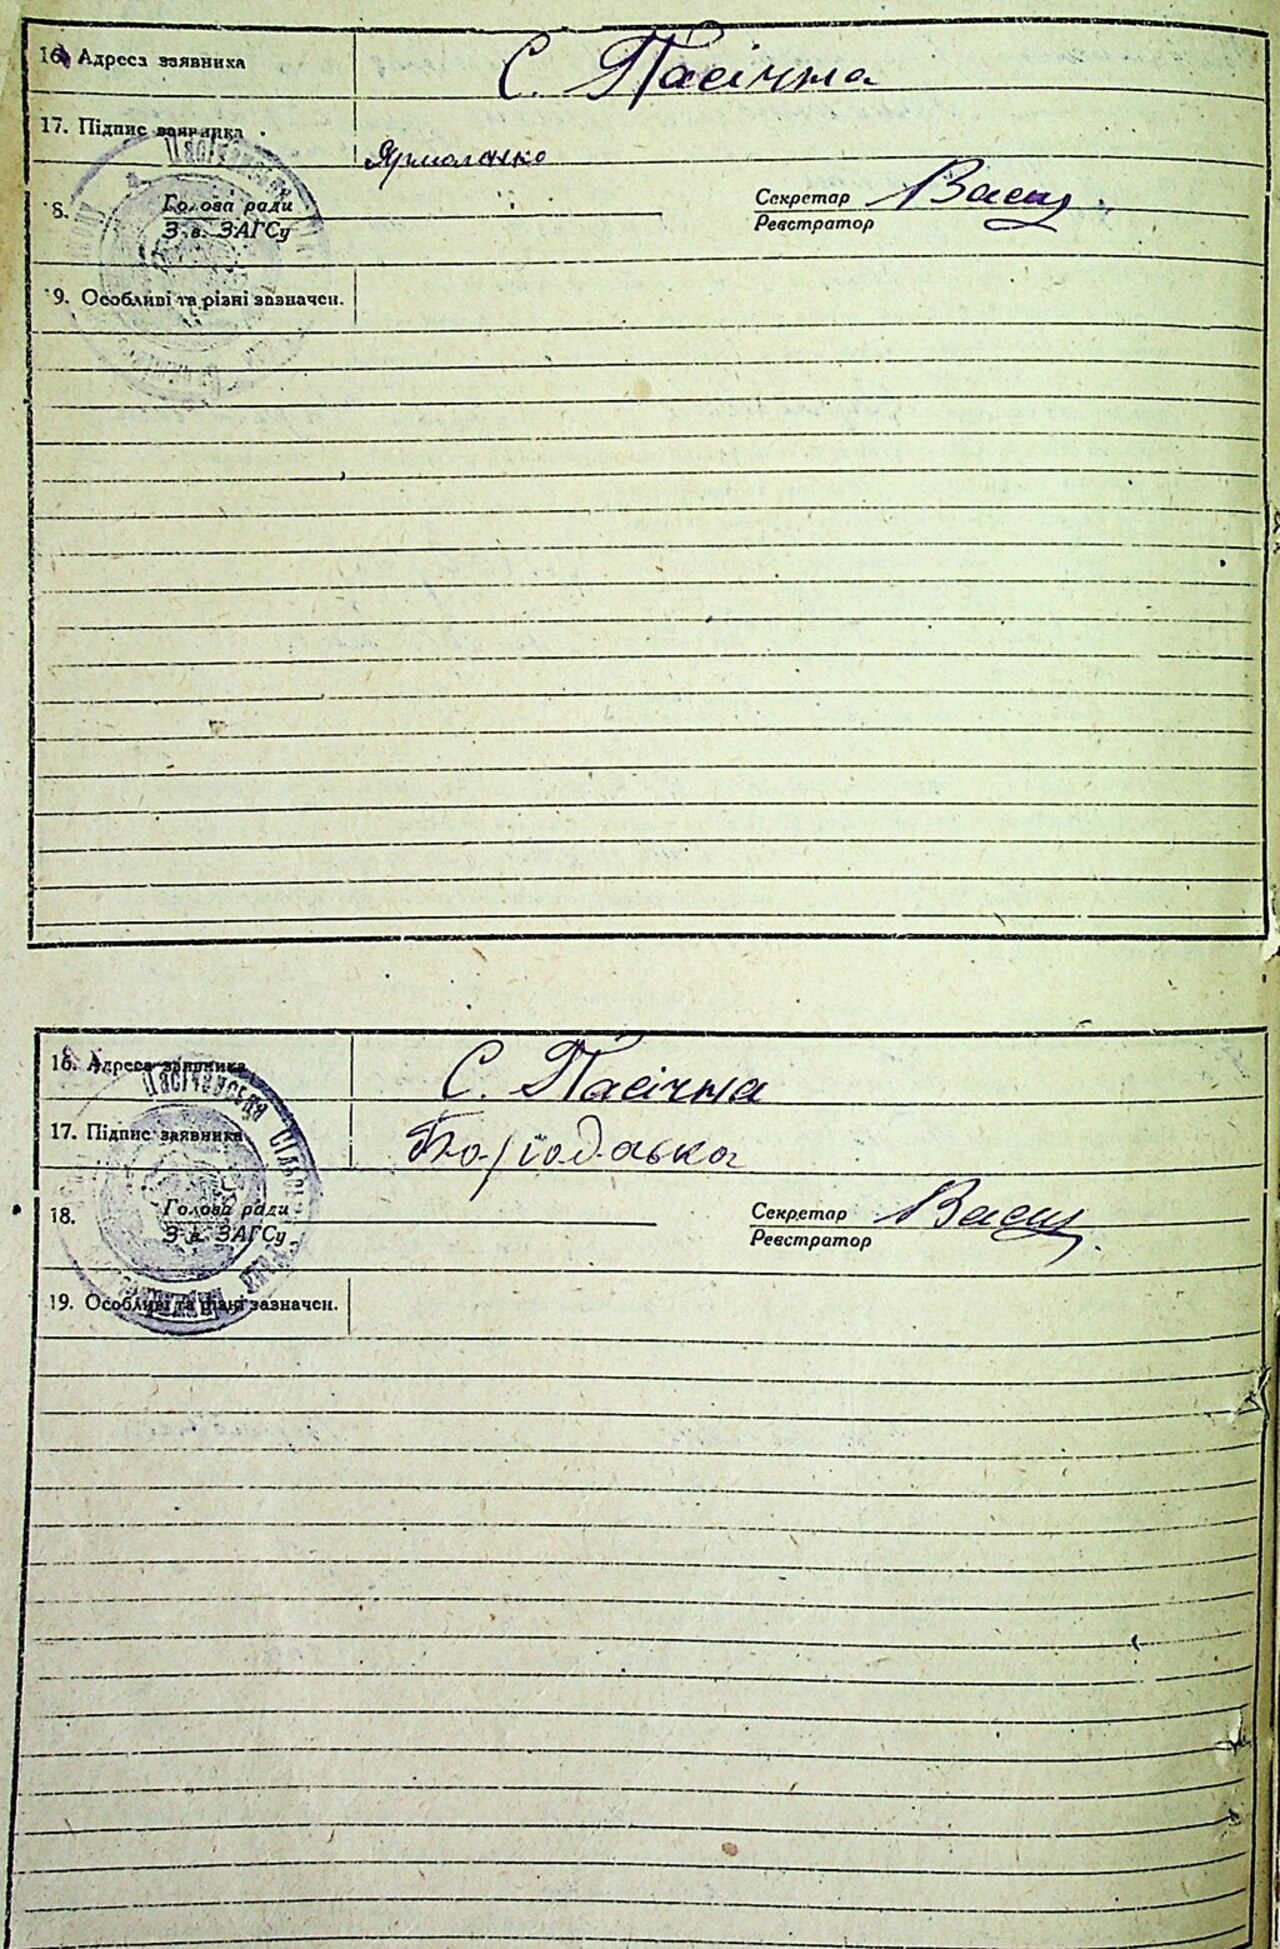 16. Адреса заявника С. Пасічна
17. Підпис заявника Ярмоленко
8. Голова ради Секретар
З.в. ЗАГСу Реєстратор
9. Особливі та різні зазначен.
16. Адреса заявника С. Пасічна
17. Підпис заявника
18. Голова ради Секретар
З.в. ЗАГСу Реєстратор
19. Особливі та різні зазначен.